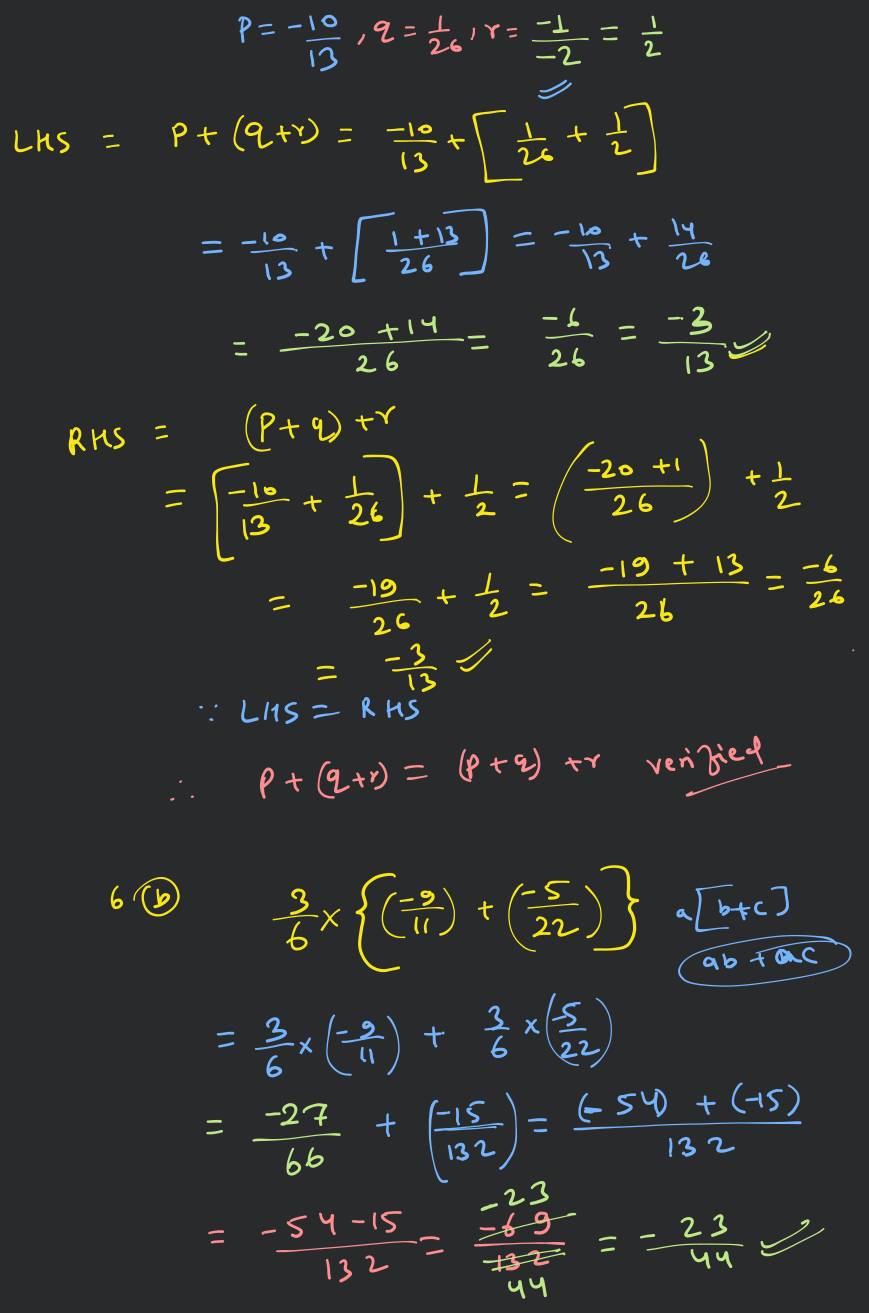 P = -10/13 , q = 1/26 , r = -1/-2 = 1/2
LHS = P + (q+r) = -10/13 + [ 1/26 + 1/2 ]
= -10/13 + [ 1+13/26 ] = -10/13 + 14/26
= -20+14/26 = -6/26 = -3/13
RHS = (P+q)+r
= [ -10/13 + 1/26 ] + 1/2 = ( -20+1/26 ) + 1/2
= -19/26 + 1/2 = -19+13/26 = -6/26
= -3/13
∵ LHS = RHS
∴ P+(q+r) = (P+q)+r verified
6 (b) 3/6 × { (-9/11) + (-5/22) } a[b+c]
ab + ac
= 3/6 × (-9/11) + 3/6 × (-5/22)
= -27/66 + (-15/132) = (-54) + (-15)/132
= -54-15/132 = -69/132 -23/44 = -23/44